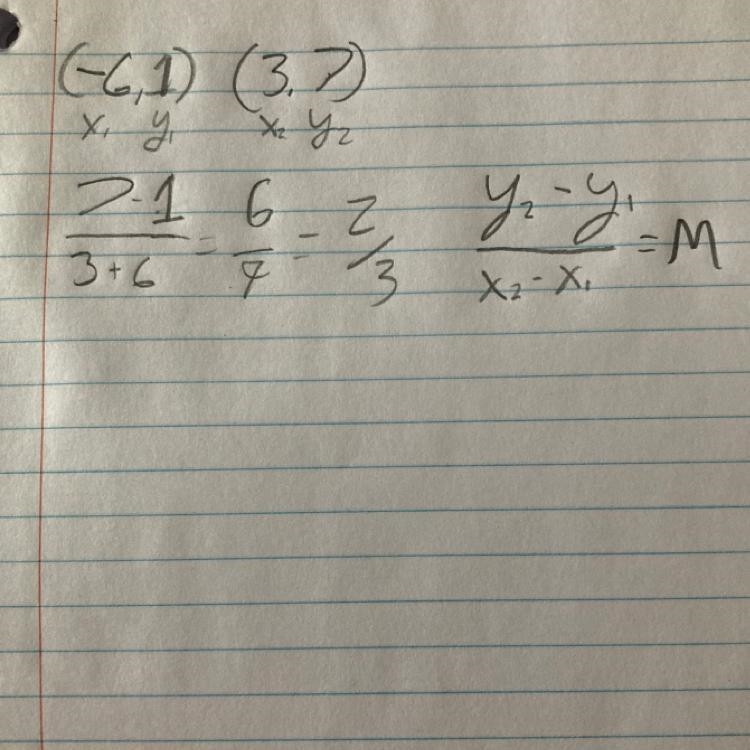 (-6,1) (3,7)
x₁ y₁ x₂ y₂
7-1/3+6 = 6/9 = 2/3 y₂-y₁/x₂-x₁ = M